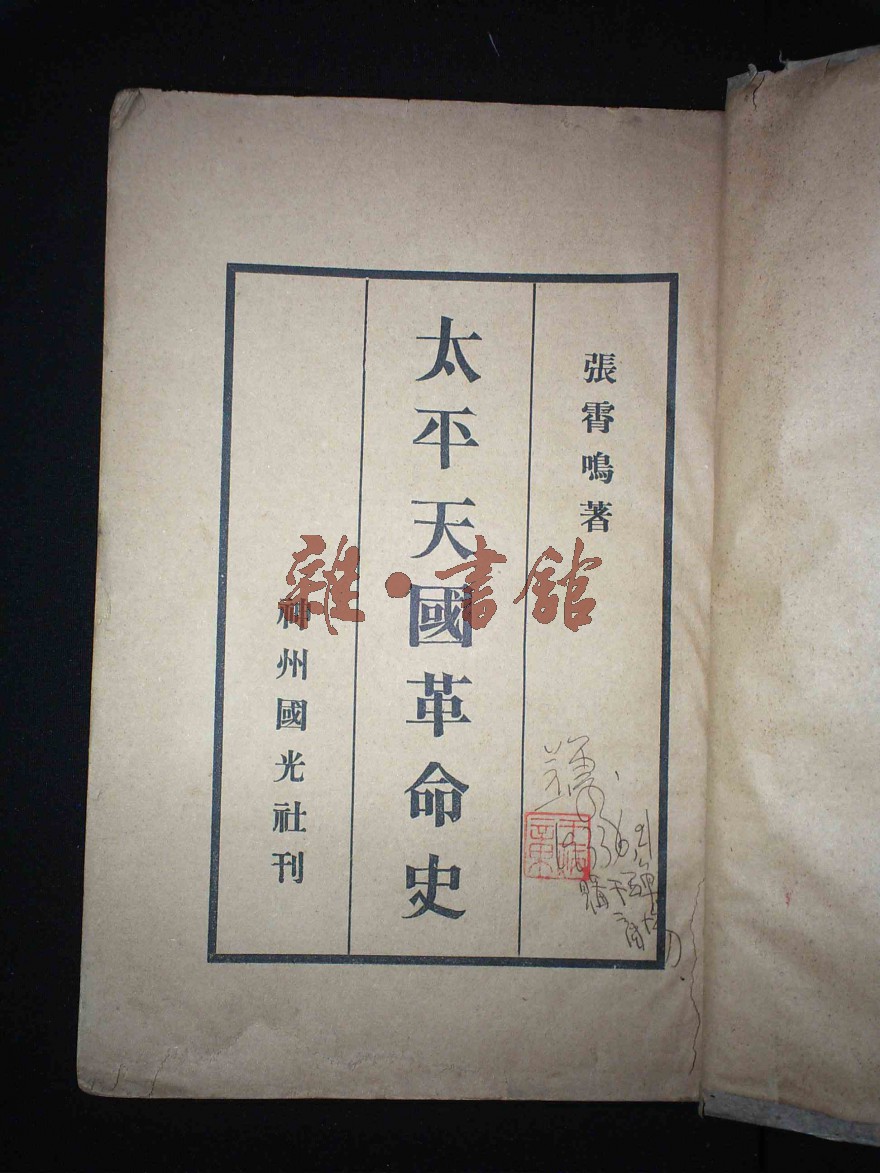 張霄鳴著
太平天國革命史
神州國光社刊
雜·書館